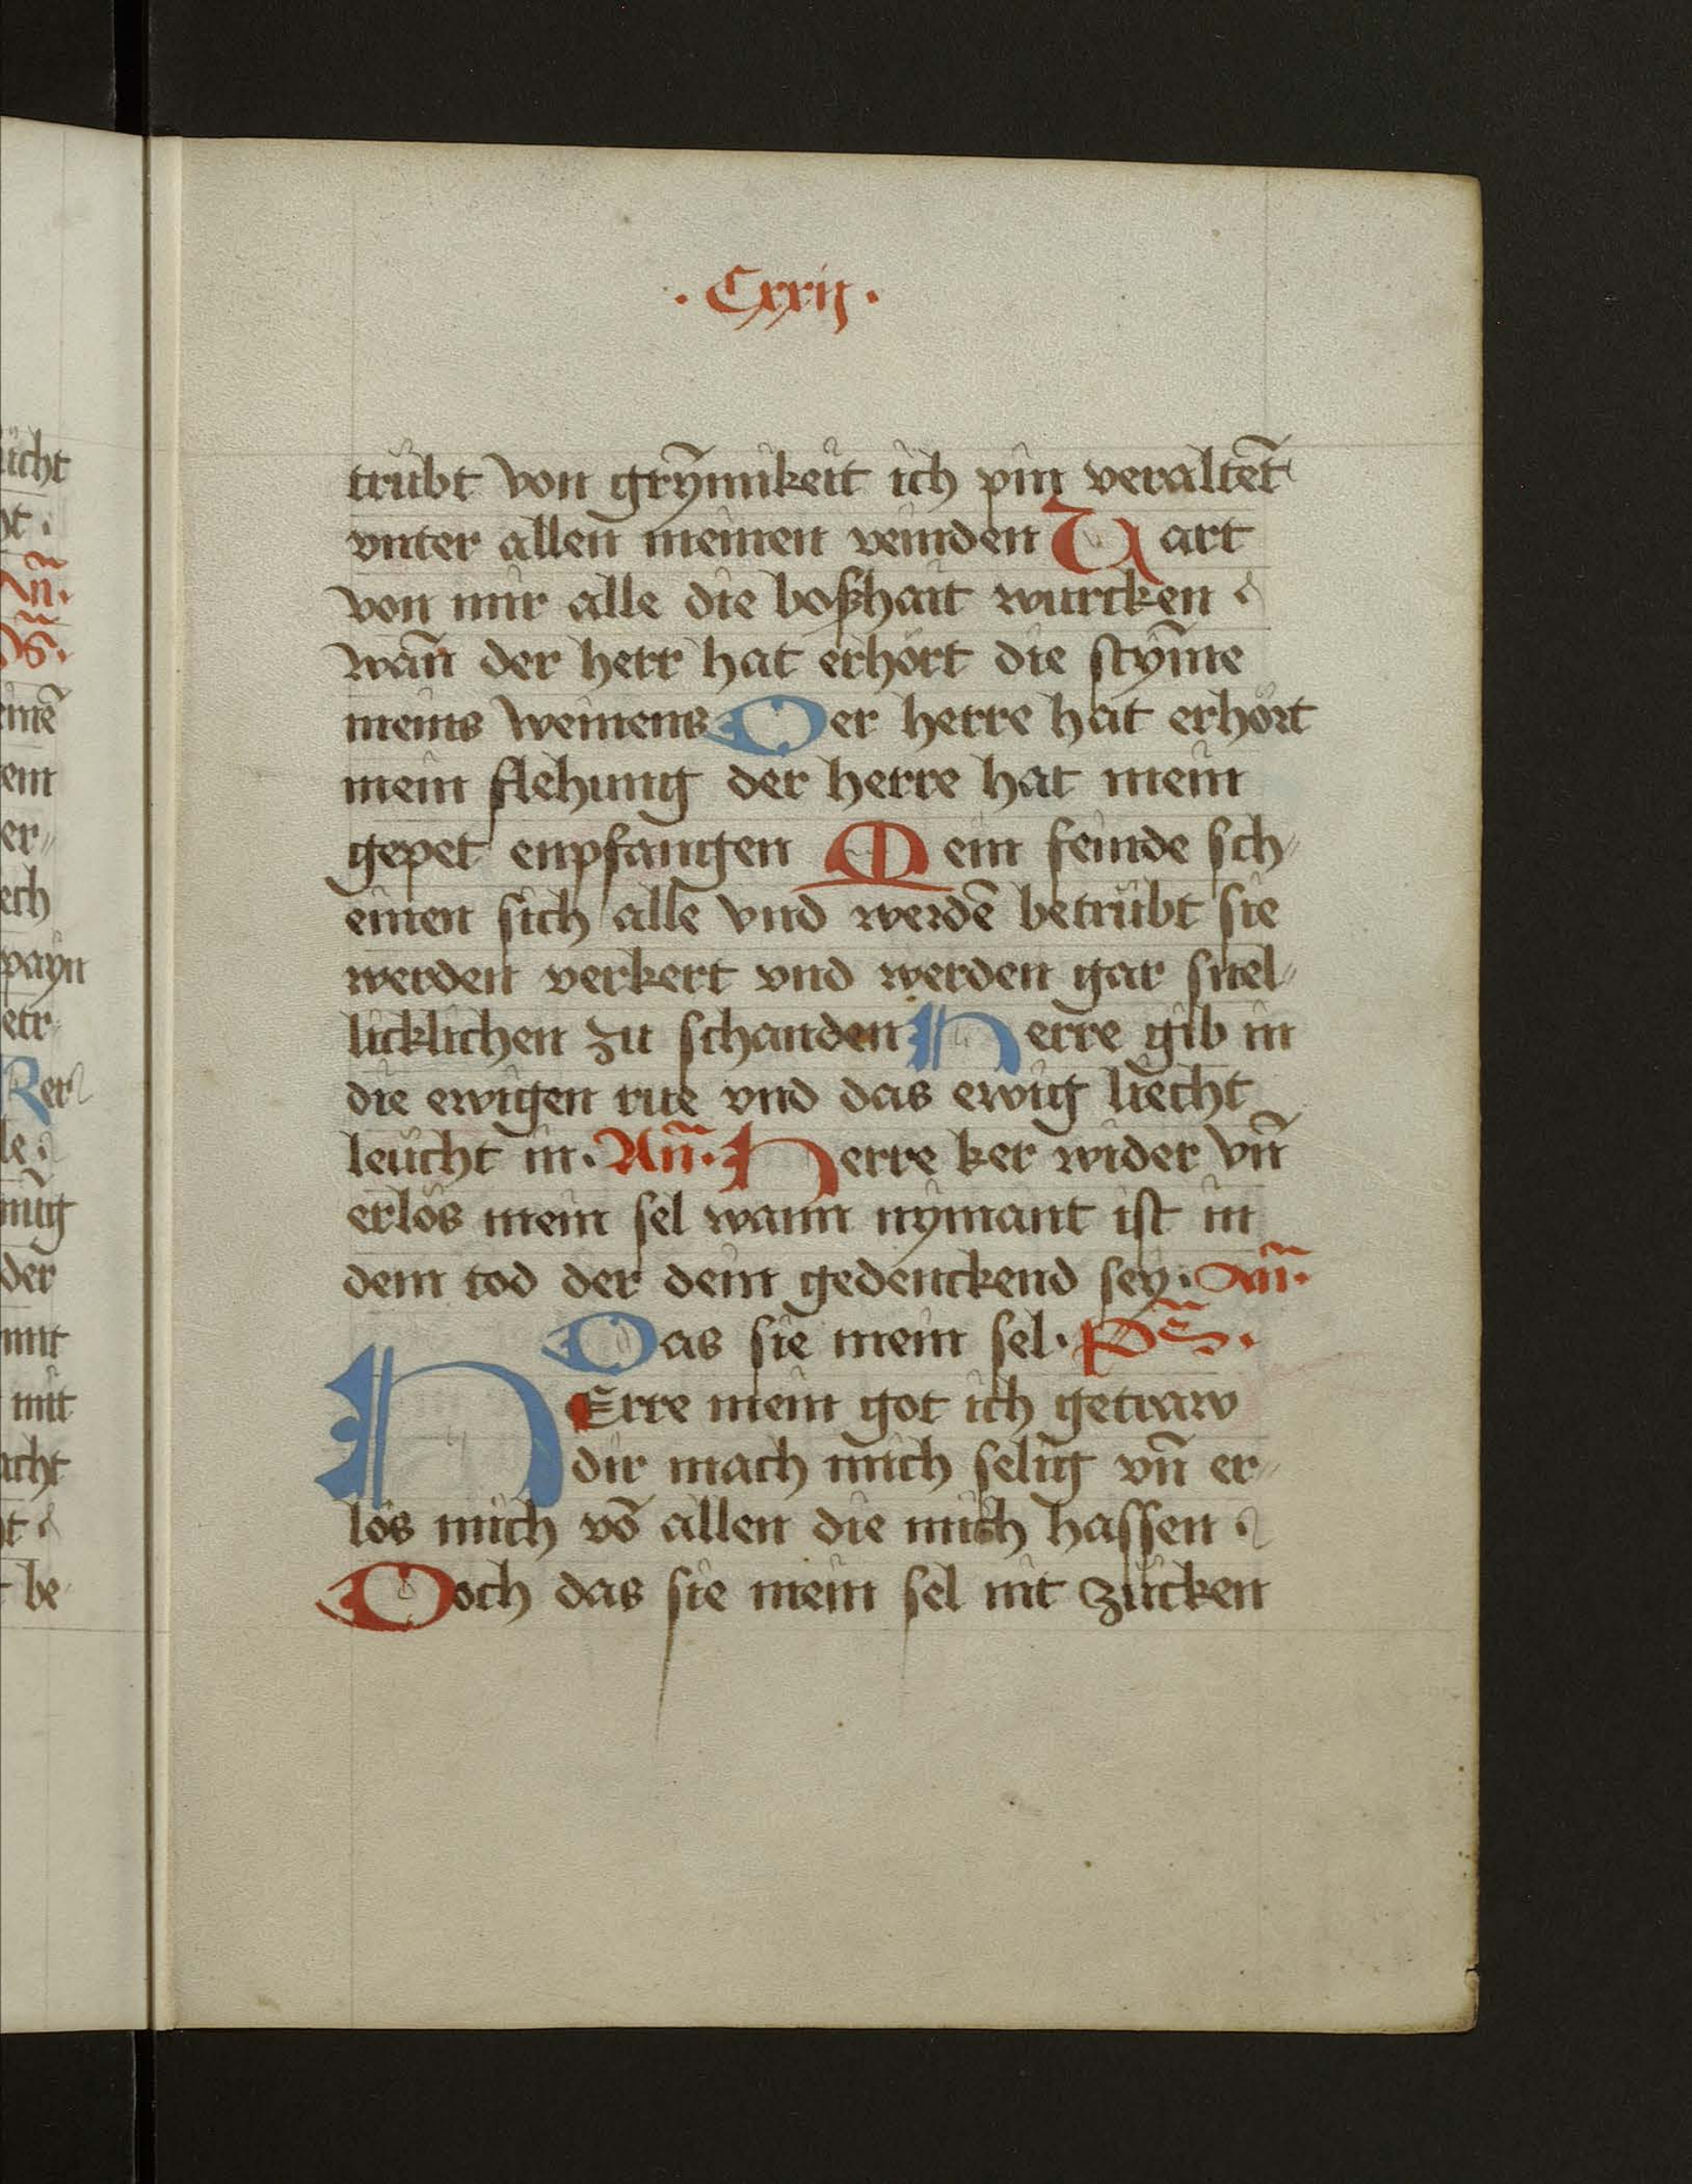 . Cxxij .
trübt von grȳmikeit ich pin veraltet
vnter allen meinen veinden Uart
von mir alle die boßhait wurcken
wan̄ der herr hat erhört die stȳme
meins weinens Der herre hat erhört
mein flehung der herre hat mein
gepet enpfangen Mein feinde sch
einen sich alle vnd werdē betrübt sie
werden verkert vnd werden gar snel
licklichen zu schanden Herre gib in
die ewigen rue vnd das ewig liecht
leücht in. An̄. Herre ker wider vn̄
erlös mein sel wann nymant ist in
dem tod der dein gedenckend sey. An̄.
Das sie mein sel. Ps̄.
HErre mein got ich getraw
dir mach mich selig vn̄ er
lös mich vō allen die mich hassen
Doch das sie mein sel nit zücken